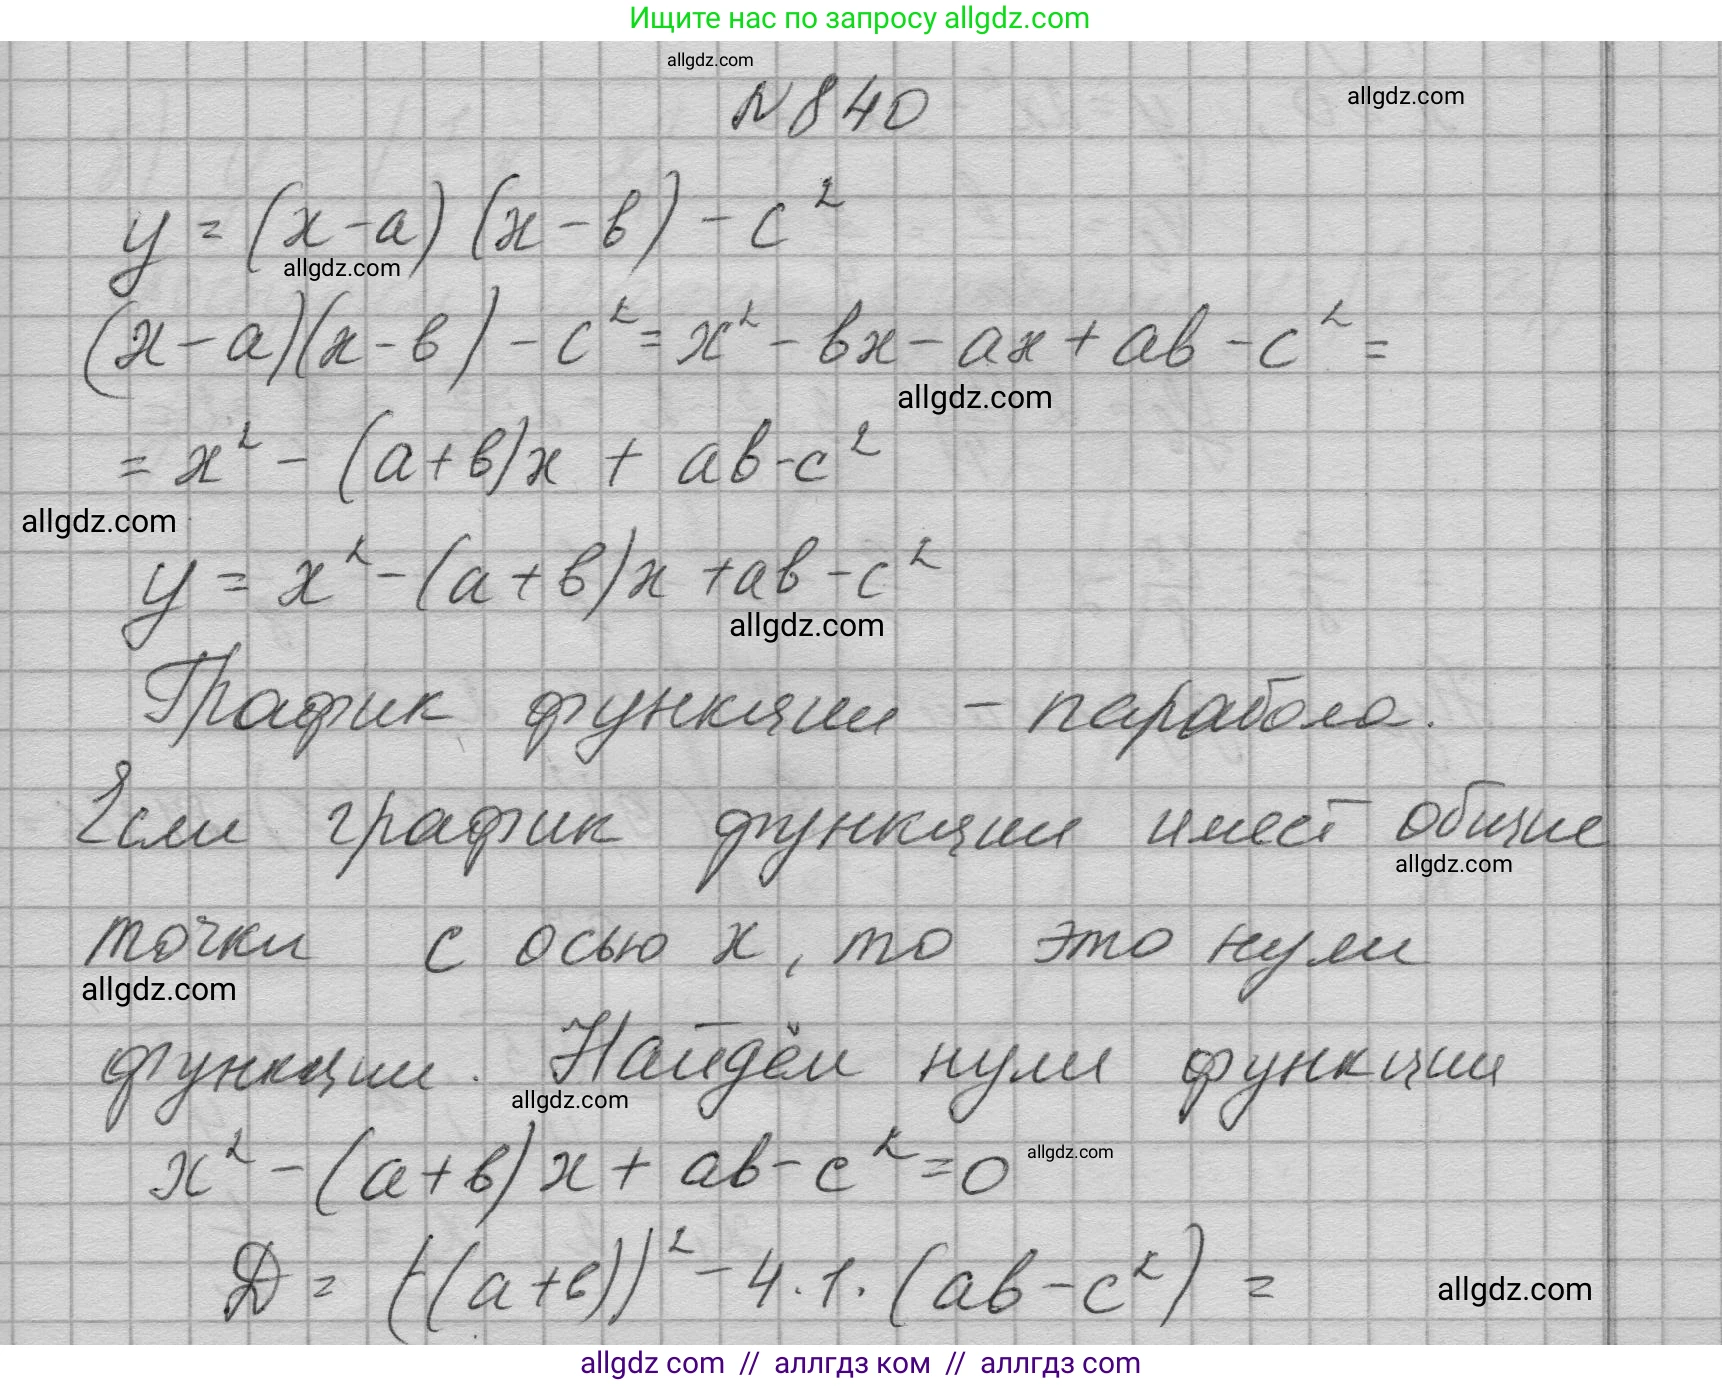 Ищите нас по запросу allgdz.com
allgdz.com
N 840
allgdz.com
y = (x-a)(x-в)-c²
allgdz.com
(x-a)(x-в)-c²=x²-вx-ax+aв-c²=
allgdz.com
=x²-(a+в)x+aв-c²
allgdz.com
y=x²-(a+в)x+aв-c²
allgdz.com
График функции - парабола.
Если график функции имеет общие
allgdz.com
точки с осью x, то это нули
allgdz.com
функции. Найдём нули функции
allgdz.com
x²-(a+в)x+aв-c²=0
allgdz.com
D=(-(a+в))²-4·1·(aв-c²)=
allgdz.com
allgdz com // аллгдз ком // аллгдз com